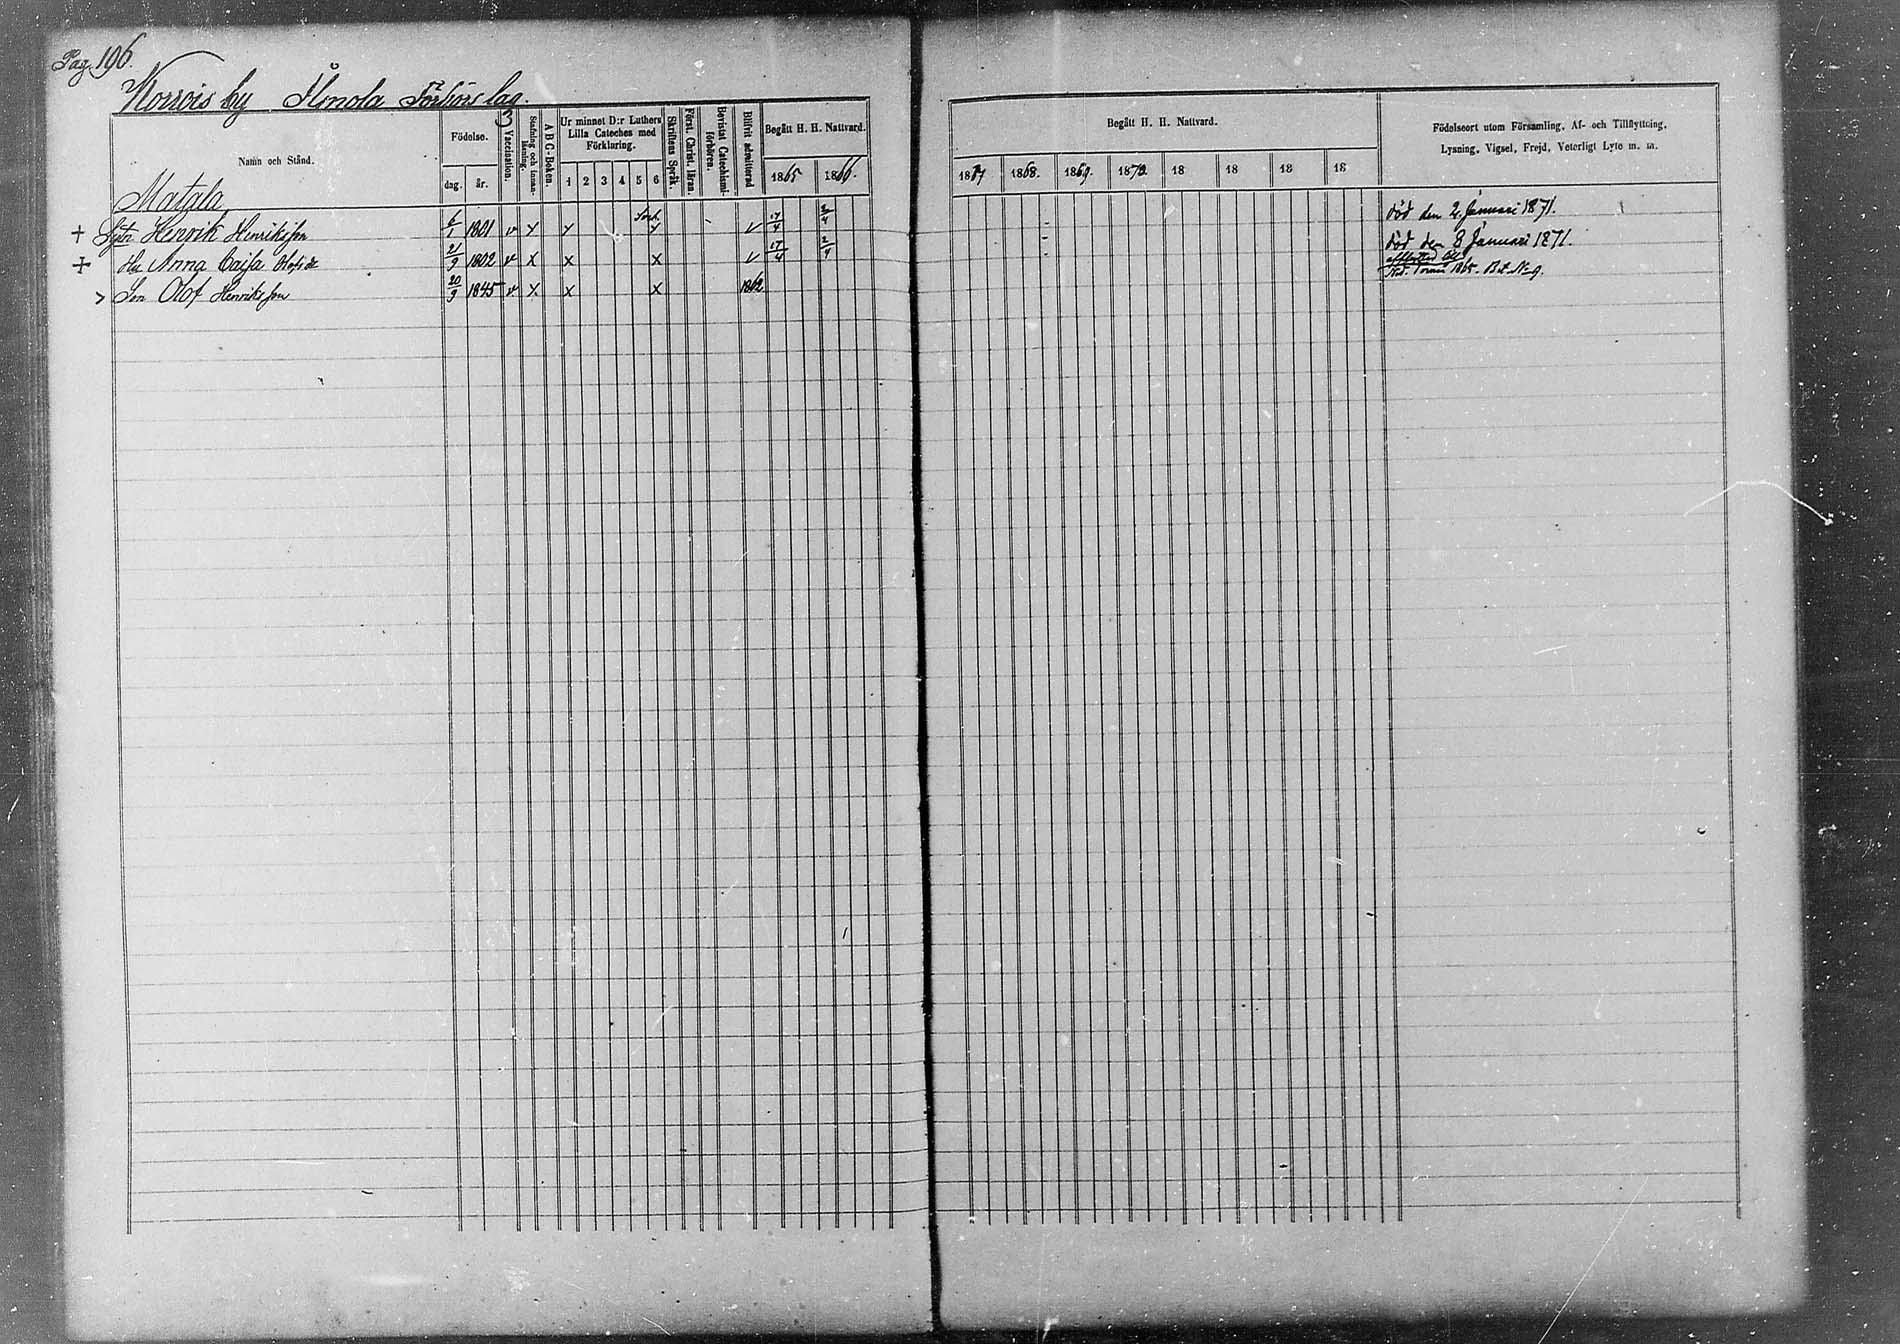 Pag. 196.
Korrois by Ilmola Förhörs lag.
Namn och Stånd.
Födelse.
dag. år.
3
Vaccination.
Stafning och innanläsning.
ABC-Boken.
Ur minnet D:r Luthers Lilla Cateches med Förklaring.
1 2 3 4 5 6
Skriftens Språk.
Först. Christ. läran.
Bevistat Catechismiförhören.
Blifvit admitterad
Begått H. H. Nattvard.
1865 1866.
Begått H. H. Nattvard.
1867 1868. 1869. 1870 18 18 18 18
Födelseort utom Församling, Af- och Tillflyttning,
Lysning, Vigsel, Frejd, Veterligt Lyte m. m.
Matala
+ Henrik Henriksson 6/1 1801 v x x x v 17/4 2/4 död den 2 Januari 1871.
+ Hu Anna Caisa Olofsdr 21/9 1802 v x x x v 17/4 2/4 död den 8 Januari 1871.
> Son Olof Henriksson 20/9 1845 v x x x 1862 1865. Bet. N:o 9.